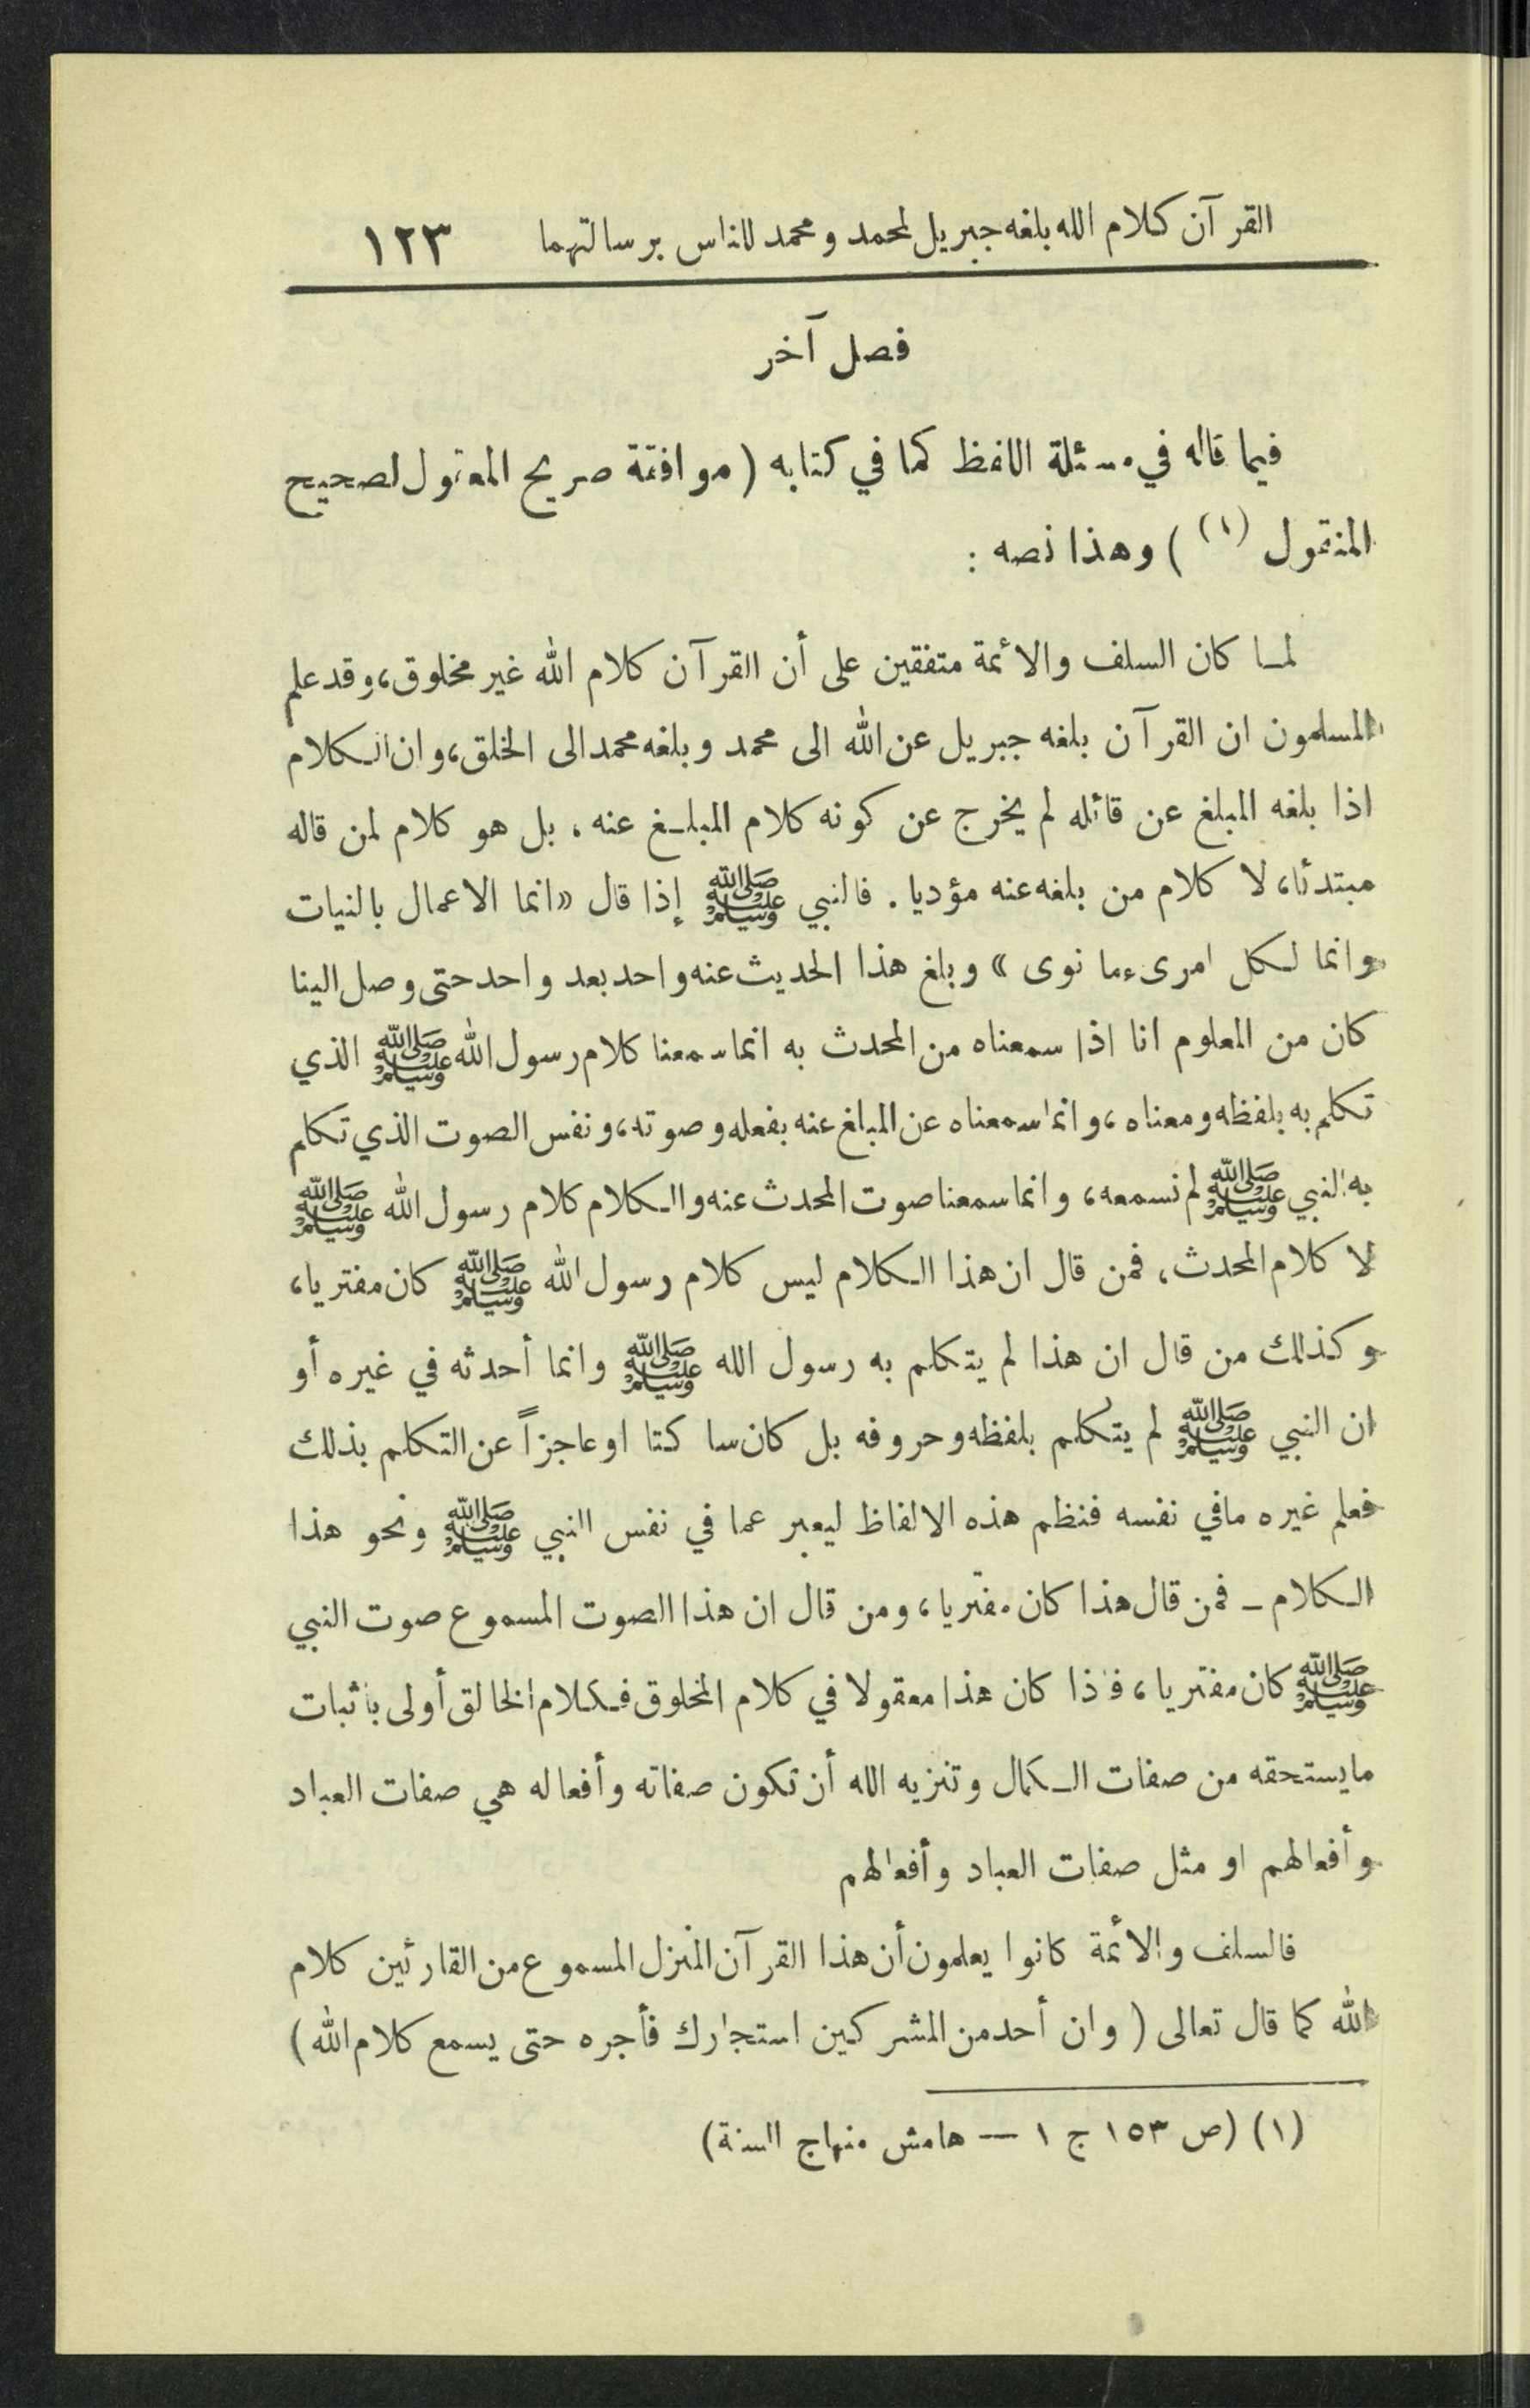 القرآن كلام الله بلغه جبريل لمحمد ومحمد للناس برسالتهما ١٢٣
فصل آخر
فيما قاله في مسئلة اللفظ كما في كتابه (موافقة صريح المعقول لصحيح
المنقول (١) ) وهذا نصه :
لما كان السلف والأئمة متفقين على أن القرآن كلام الله غير مخلوق، وقد علم
المسلمون ان القرآن بلغه جبريل عن الله الى محمد وبلغه محمد الى الخلق، وان الكلام
اذا بلغه المبلغ عن قائله لم يخرج عن كونه كلام المبلغ عنه ، بل هو كلام لمن قاله
مبتدئا، لا كلام من بلغه عنه مؤديا . فالنبي ﷺ إذا قال «انما الاعمال بالنيات
وانما لكل امرىء ما نوى » وبلغ هذا الحديث عنه واحد بعد واحد حتى وصل الينا
كان من المعلوم انا اذا سمعناه من المحدث به انما سمعنا كلام رسول الله ﷺ الذي
تكلم به بلفظه ومعناه ، وانما سمعناه عن المبلغ عنه بفعله وصوته، ونفس الصوت الذي تكلم
به النبي ﷺ لم نسمعه، وانما سمعنا صوت المحدث عنه والكلام كلام رسول الله ﷺ
لا كلام المحدث، فمن قال ان هذا الكلام ليس كلام رسول الله ﷺ كان مفتريا،
وكذلك من قال ان هذا لم يتكلم به رسول الله ﷺ وانما أحدثه في غيره أو
ان النبي ﷺ لم يتكلم بلفظه وحروفه بل كان ساكتا او عاجزاً عن التكلم بذلك
فعلم غيره مافي نفسه فنظم هذه الالفاظ ليعبر عما في نفس النبي ﷺ ونحو هذا
الكلام ـ فمن قال هذا كان مفتريا ، ومن قال ان هذا الصوت المسموع صوت النبي
ﷺ كان مفتريا ، فاذا كان هذا معقولا في كلام المخلوق فكلام الخالق أولى باثبات
مايستحقه من صفات الكمال وتنزيه الله أن تكون صفاته وأفعاله هي صفات العباد
وأفعالهم او مثل صفات العباد وأفعالهم
فالسلف والأئمة كانوا يعلمون أن هذا القرآن المنزل المسموع من القارئين كلام
الله كما قال تعالى (وان أحد من المشركين استجارك فأجره حتى يسمع كلام الله)
(١) (ص ١٥٣ ج ١ — هامش منهاج السنة)